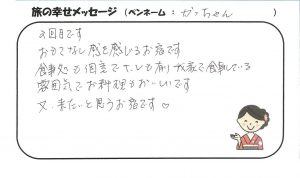 旅の幸せメッセージ(ペンネーム:がっちゃん)
2回目です
おもてなし感を感じるお宿です
食事処も個室で
我家で食事している
雰囲気でお料理もおいしいです
又、来たいと思うお宿です♡